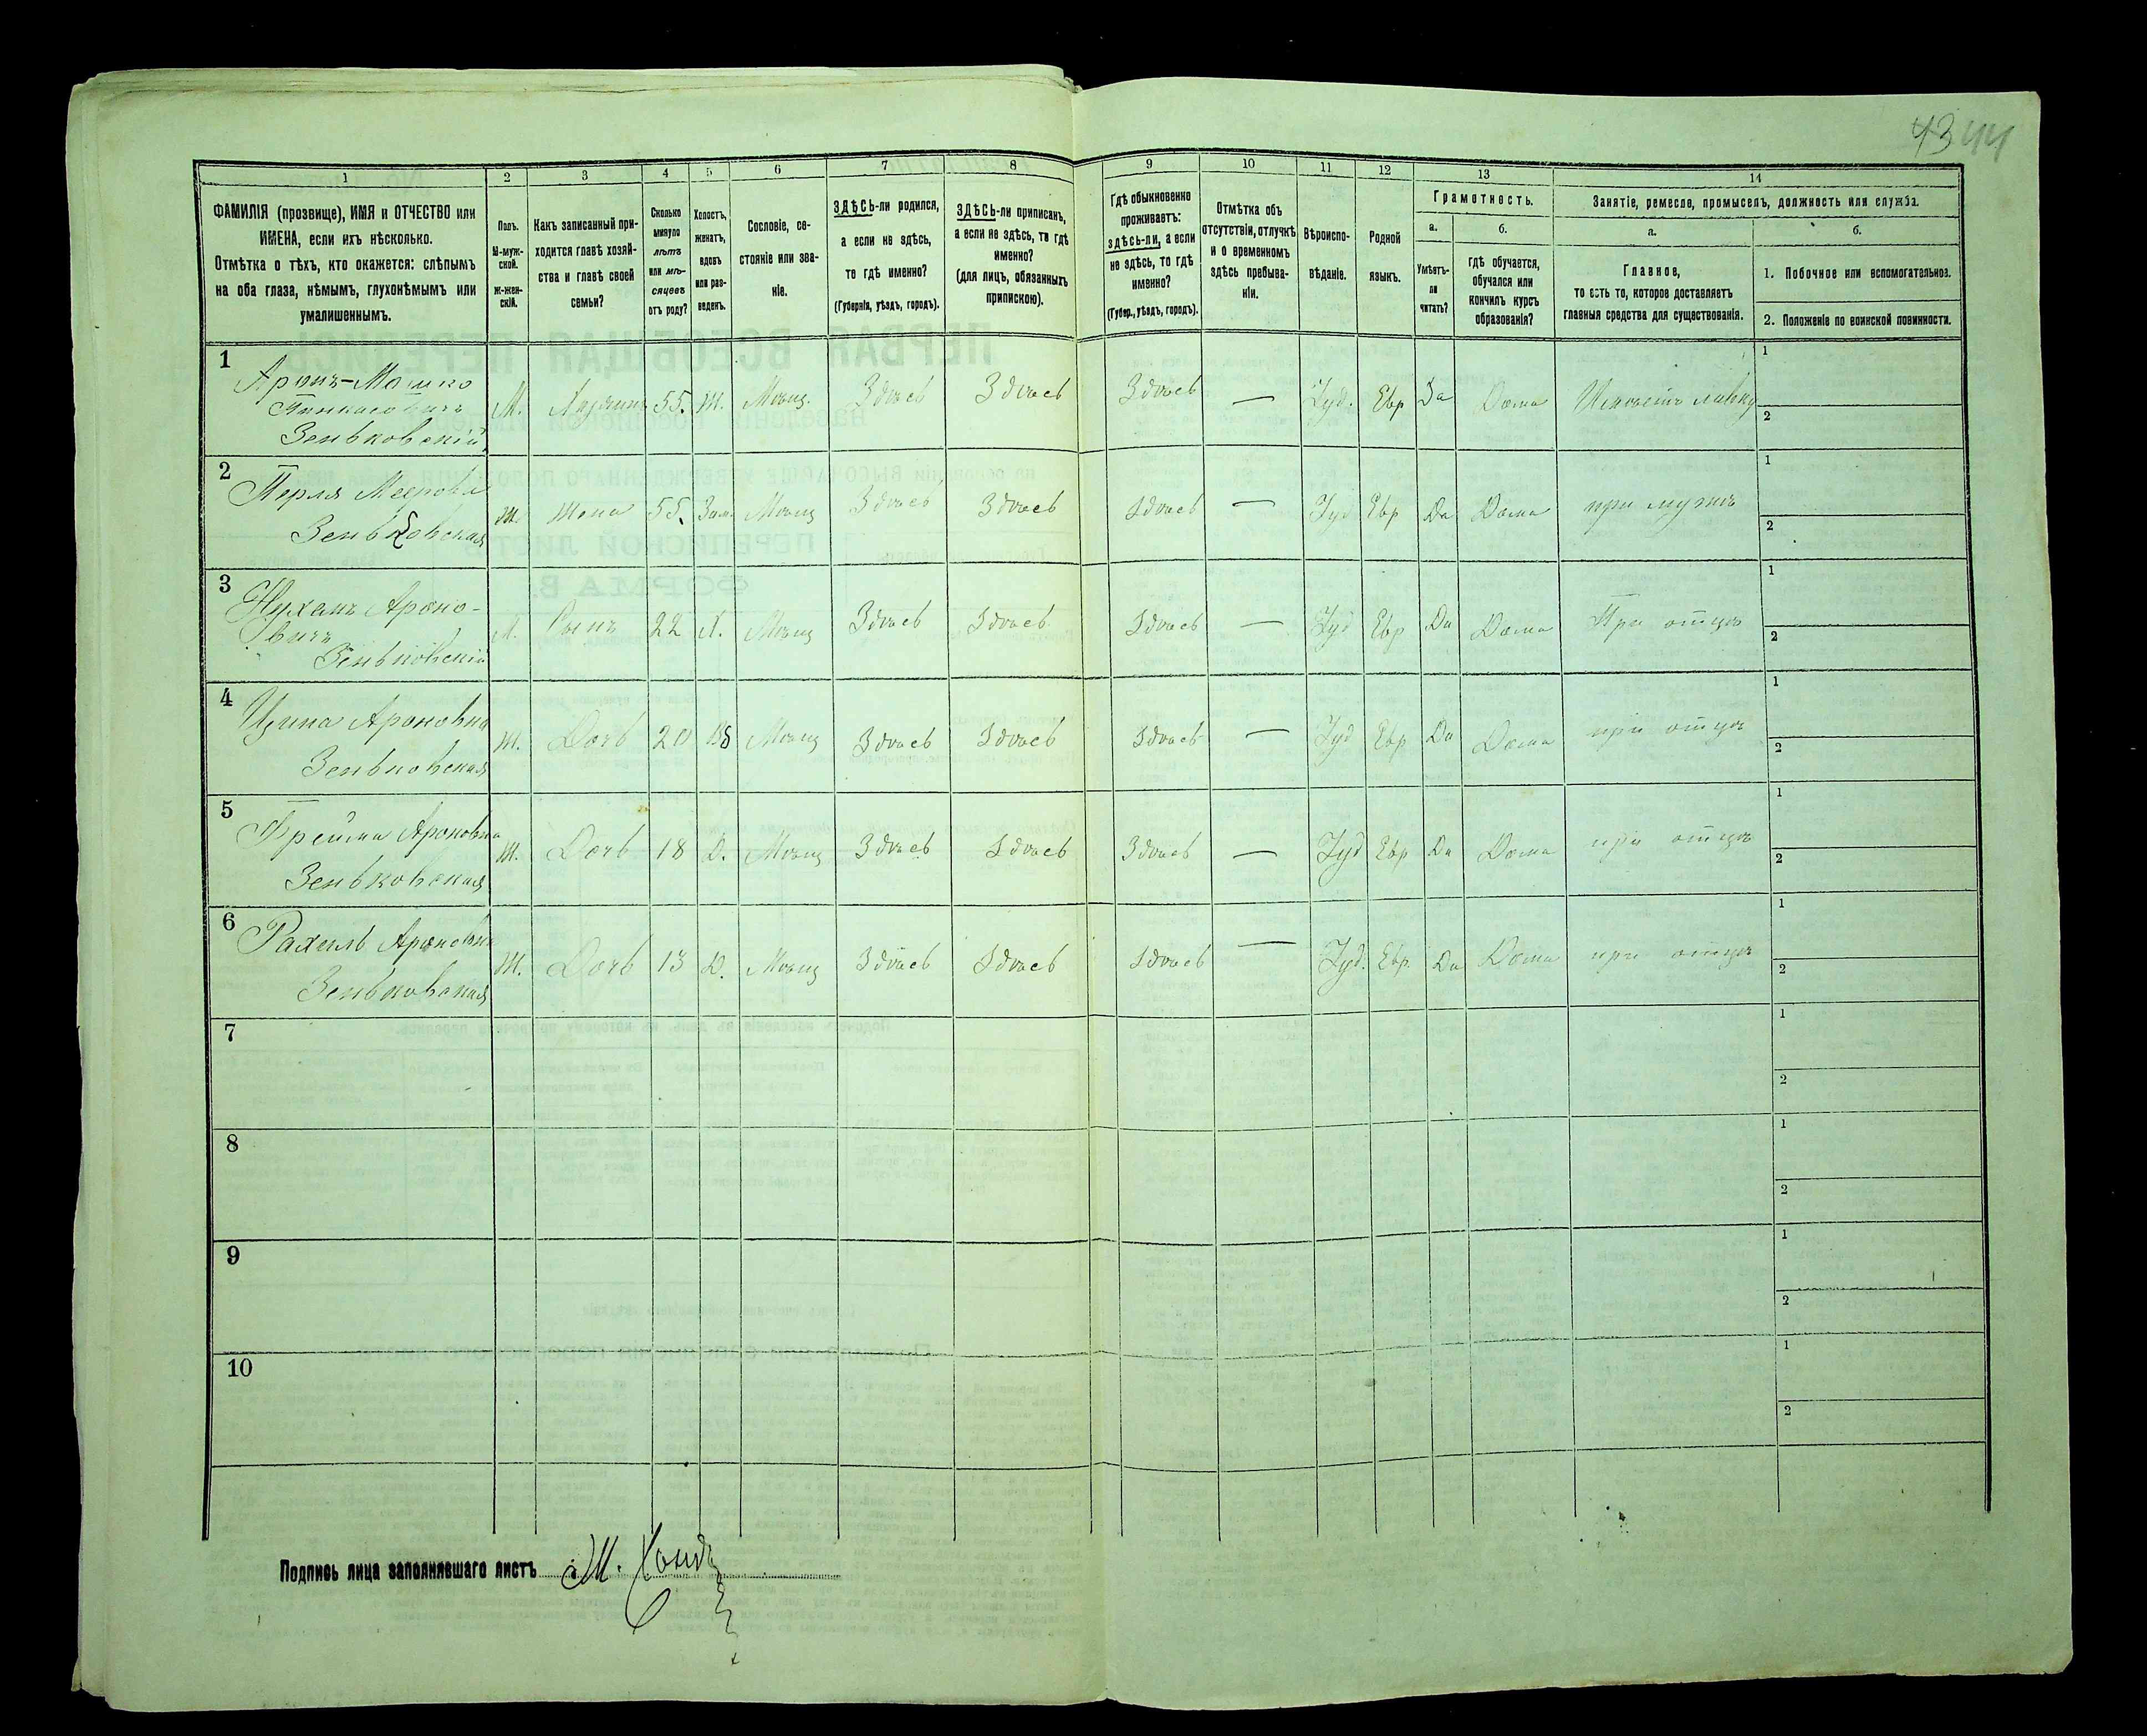 43 44
1 2 3 4 5 6 7 8 9 10 11 12 13 14
ФАМИЛІЯ (прозвище), ИМЯ и ОТЧЕСТВО или
ИМЕНА, если ихъ нѣсколько.
Отмѣтка о тѣхъ, кто окажется: слѣпымъ
на оба глаза, нѣмымъ, глухонѣмымъ или
умалишеннымъ.
Полъ.
М-муж-
ской.
Ж-жен-
скій.
Какъ записанный при-
ходится главѣ хозяй-
ства и главѣ своей
семьи?
Сколько
минуло
лѣтъ
или мѣ-
сяцевъ
отъ роду?
Холостъ,
женатъ,
вдовъ
или раз-
веденъ.
Сословіе, со-
стояніе или зва-
ніе.
ЗДѢСЬ-ли родился,
а если не здѣсь,
то гдѣ именно?
(Губернія, уѣздъ, городъ).
ЗДѢСЬ-ли приписанъ,
а если не здѣсь, то гдѣ
именно?
(для лицъ, обязанныхъ
припискою).
Гдѣ обыкновенно
проживаетъ:
здѣсь-ли, а если
не здѣсь, то гдѣ
именно?
(Губер., уѣздъ, городъ).
Отмѣтка объ
отсутствіи, отлучкѣ
и о временномъ
здѣсь пребыва-
ніи.
Вѣроиспо-
вѣданіе.
Родной
языкъ.
Грамотность.
а.
Умѣетъ-
ли
читать?
б.
гдѣ обучается,
обучался или
кончилъ курсъ
образованія?
Занятіе, ремесло, промыселъ, должность или служба.
а.
Главное,
то есть то, которое доставляетъ
главныя средства для существованія.
б.
1. Побочное или вспомогательное.
2. Положеніе по воинской повинности.
1
Аронъ-Мошко
Пинхасовичъ
Зеньковскій
М. Хозяинъ 55. Ж. Мѣщ. Здѣсь Здѣсь Здѣсь — Іуд. Евр Да Дома 1 2
2
Перля Меерова
Зеньковская
Ж. Жена 55. Зам. Мѣщ Здѣсь Здѣсь Здѣсь — Іуд Евр Да Дома при мужѣ 1 2
3
Нухамъ Ароно-
вичъ
Зеньковскій
М. Сынъ 22 Х. Мѣщ Здѣсь Здѣсь Здѣсь — Іуд Евр Да Дома При отцѣ 1 2
4
Ароновна
Зеньковская
Ж. Дочь 20 Мѣщ Здѣсь Здѣсь Здѣсь — Іуд Евр Да Дома при отцѣ 1 2
5
Фрейма Ароновна
Зеньковская
Ж. Дочь 18 Д. Мѣщ Здѣсь Здѣсь Здѣсь — Іуд Евр Да Дома при отцѣ 1 2
6
Рахиль Ароновна
Зеньковская
Ж. Дочь 13 Д. Мѣщ Здѣсь Здѣсь Здѣсь — Іуд. Евр. Да Дома при отцѣ 1 2
7 1 2
8 1 2
9 1 2
10 1 2
Подпись лица заполнявшаго листъ М.